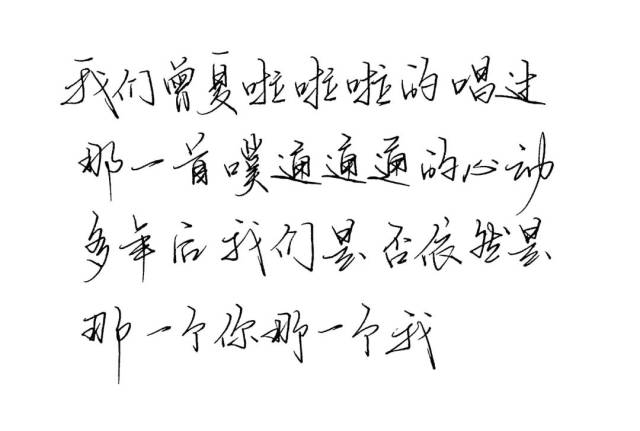 我们曾夏啦啦啦的唱过
那一首噗通通通的心动
多年后我们是否依然是
那一个你那一个我